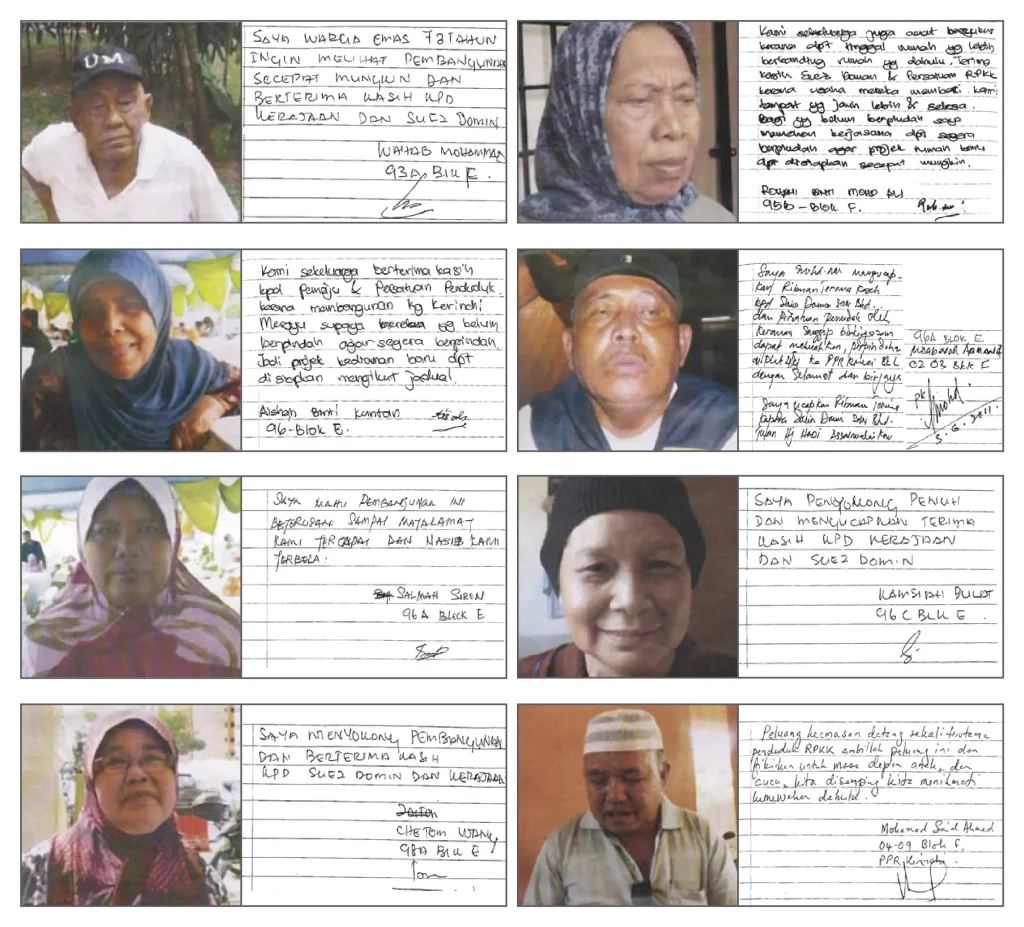 UM
SAYA WARGA EMAS 73 TAHUN
INGIN MELIHAT PEMBANGUNAN
SECEPAT MUNGKIN DAN
BERTERIMA KASIH KPD
KERAJAAN DAN SUEZ DOMIN
WAHAB MOHAMMAD
93A BLK E.
Kami sekeluarga juga amat bersyukur
kerana dpt tinggal rumah yg lebih
berbanding rumah yg dahulu. Terima
kasih Suez Domain & Persatuan RPKK
kerana usaha mereka memberi kami
tempat yg jauh lebih & selesa.
Bagi yg belum berpindah saya
memohon kerjasama dpt segera
berpindah agar projek rumah baru
dpt disiapkan secepat mungkin.
BINTI MOHD ALI
95B - BLOK F.
Kami sekeluarga berterima kasih
kpd Pemaju & Persatuan Penduduk
kerana membangunkan Kg Kerinchi
supaya mereka yg belum
berpindah agar segera berpindah
Jadi projek kediaman baru dpt
disiapkan mengikut jadual.
Aishah Binti Kuntan
96 - Blok E.
Saya mengucap
kan Ribuan Terima Kasih
kpd Sdn Bhd.
dan Persatuan Penduduk oleh
kerana
dapat
ke PPR
dengan Selamat dan berjaya
Saya ucapkan Ribuan Terima
kepada Sdn Bhd.
Tuan Hj Hadi
96A BLOK E
02 03 BLK F
5.6.2011
SAYA MAHU PEMBANGUNAN INI
BETERUSAN SAMPAI MATALAMAT
KAMI TERCAPAI DAN NASIB KAMI
TERBELA.
SALMAH SIRON
96A Block E
SAYA PENYOKONG PENUH
DAN MENGUCAPKAN TERIMA
KASIH KPD KERAJAAN
DAN SUEZ DOMIN
KAMSIAH BULAT
96C BLK E.
SAYA MENYOKONG PEMBANGUNAN
DAN BERTERIMA KASIH
KPD SUEZ DOMIN DAN KERAJAAN
CHE TOM
98A BLK E
Peluang keemasan datang sekali terutama
penduduk RPKK ambillah peluang ini dan
fikirkan untuk masa depan anak, dan
cucu, kita disamping kita menikmati
kemewahan dahulu.
Mohamad Said Ahmad
04-09 Blok F,
PPR Kerinchi.